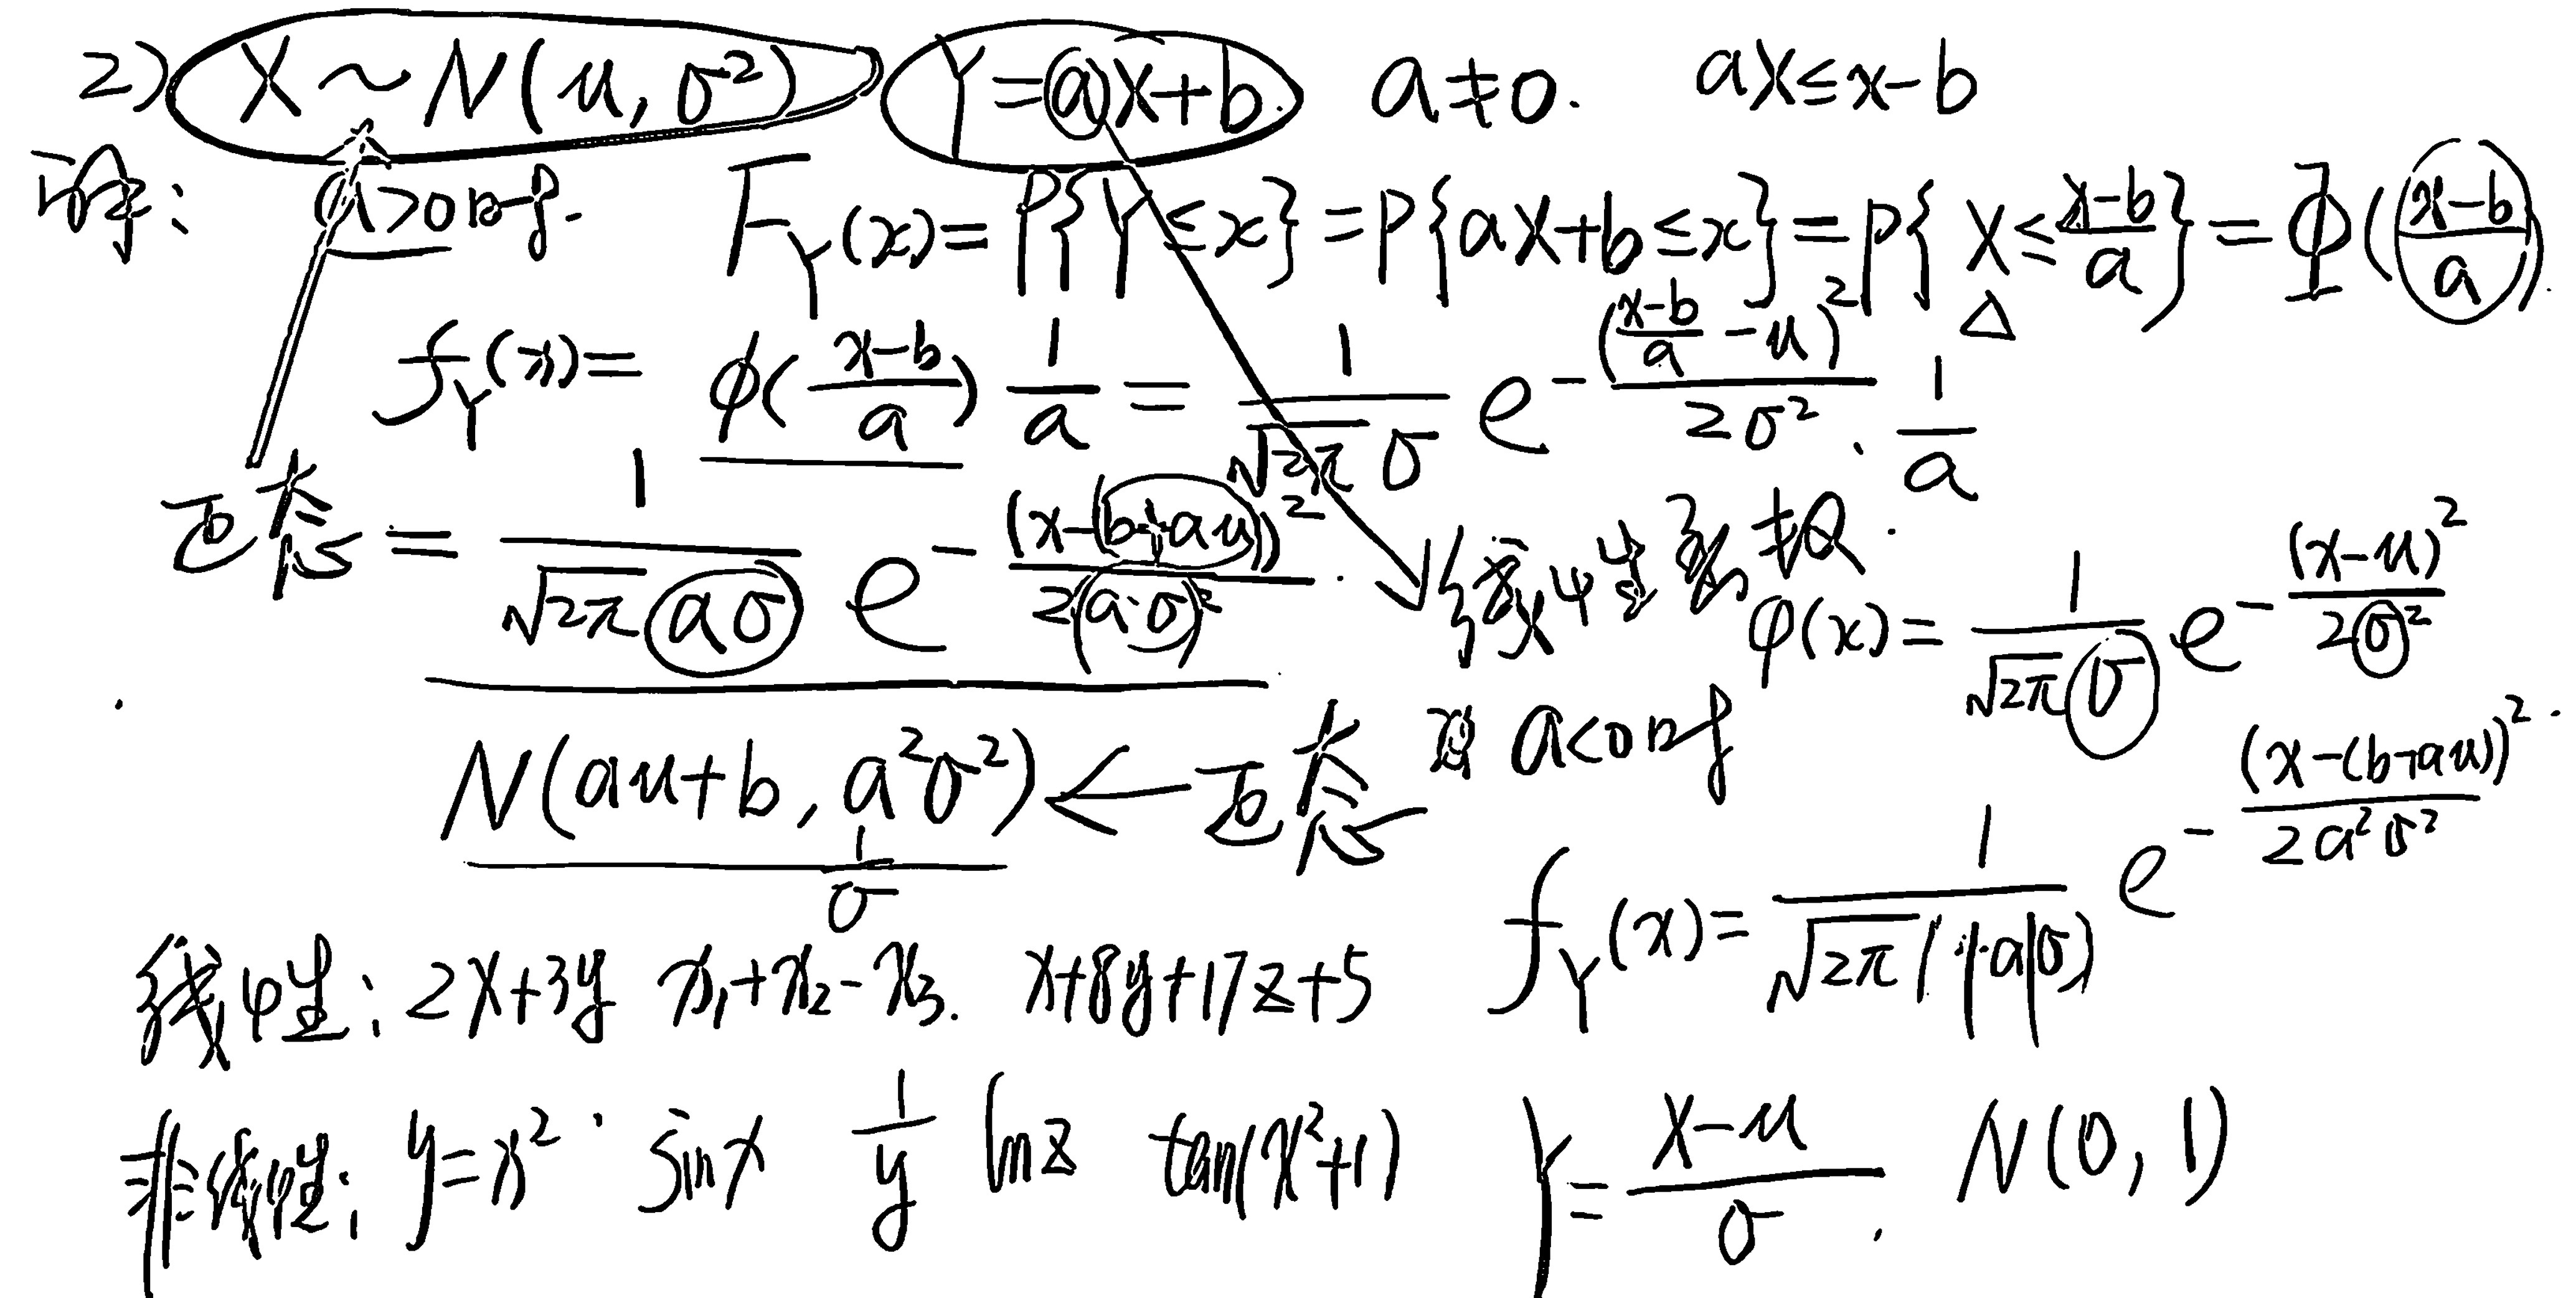 2) X ~ N(μ, σ²) Y = aX+b. a≠0. aX≤x-b
a>0时. F_Y(x) = P{Y≤x} = P{aX+b≤x} = P{X≤(x-b)/a} = Φ((x-b)/a).
f_Y(x) = φ((x-b)/a) 1/a = 1/(√2π σ) e^(-((x-b)/a - μ)²/(2σ²)) · 1/a
正态 = 1/(√2π aσ) e^(-(x-(b+aμ))²/(2(a·σ)²)).
线性变换.
φ(x) = 1/(√2π σ) e^(-(x-μ)²/(2σ²))
N(aμ+b, a²σ²) ← 正态
a<0时
1/σ
f_Y(x) = 1/(√2π |a|σ) e^(-(x-(b+aμ))²/(2a²σ²)).
线性: 2x+3y x₁+x₂-x₃. x+8y+17z+5
非线性: y=x² sinx 1/y lnz tan(x²+1)
Y = (X-μ)/σ. N(0, 1)